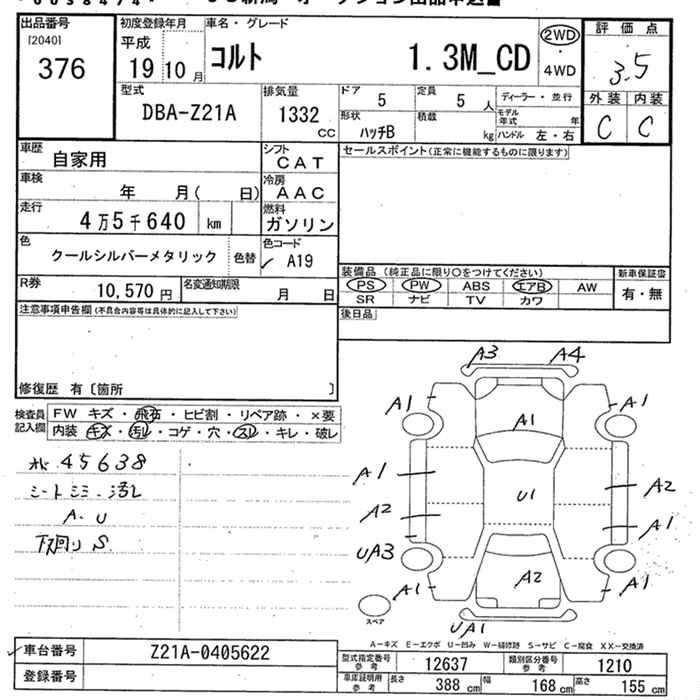 出品番号
[2040]
376
初度登録年月
平成
19 10 月
車名・グレード
コルト 1.3M_CD
2WD
・
4WD
評価点
3.5
外装 内装
C C
型式
DBA-Z21A
排気量
1332 cc
ドア
5
定員
5 人
ディーラー・並行
形状
ハッチB
積載
kg
モデル年式 年
ハンドル 左・右
車歴
自家用
シフト
CAT
セールスポイント(正常に機能するものに限ります)
車検
年 月( 日)
冷房
AAC
走行
4万5千640 km
燃料
ガソリン
色
クールシルバーメタリック
色替
色コード
✓ A19
R券
10,570 円
名変通知期限
月 日
装備品(純正品に限り○をつけてください)
PS PW ABS エアB AW
SR ナビ TV カワ
新車保証書
有・無
注意事項申告欄(不具合内容等は具体的に記入して下さい)
後日品
修復歴 有〔箇所 〕
検査員記入欄
FW キズ・飛石・ヒビ割・リペア跡・×要
内装 キズ・汚レ・コゲ・穴・スレ・キレ・破レ
45638
シートシミ・汚レ
A.U
下回り S
A3 A4
A1 A1 A1
A1 U1 A2
A2 A1
UA3
A1 A2 A1
スペア
UA1
A－キズ E－エクボ U－凹み W－補修跡 S－サビ C－腐食 XX－交換済
✓ 車台番号 Z21A-0405622
登録番号
型式指定番号参考 12637 類別区分番号参考 1210
車庫証明用参考 長さ 388 cm 幅 168 cm 高さ 155 cm